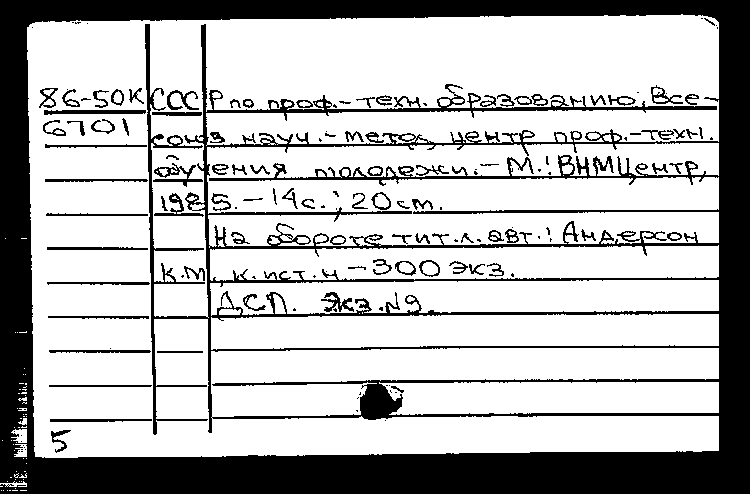 86-50К СССР по проф.-техн. образованию, Все-
6701 союз науч.-метод центр проф.-техн.
обучения молодежи.-М.: ВНМЦентр,
1985.-14с.; 20см.
На обороте тит.л. авт.: Андерсон
К.М., к.ист.н - 300 экз.
ДСП. Экз.№9.
5